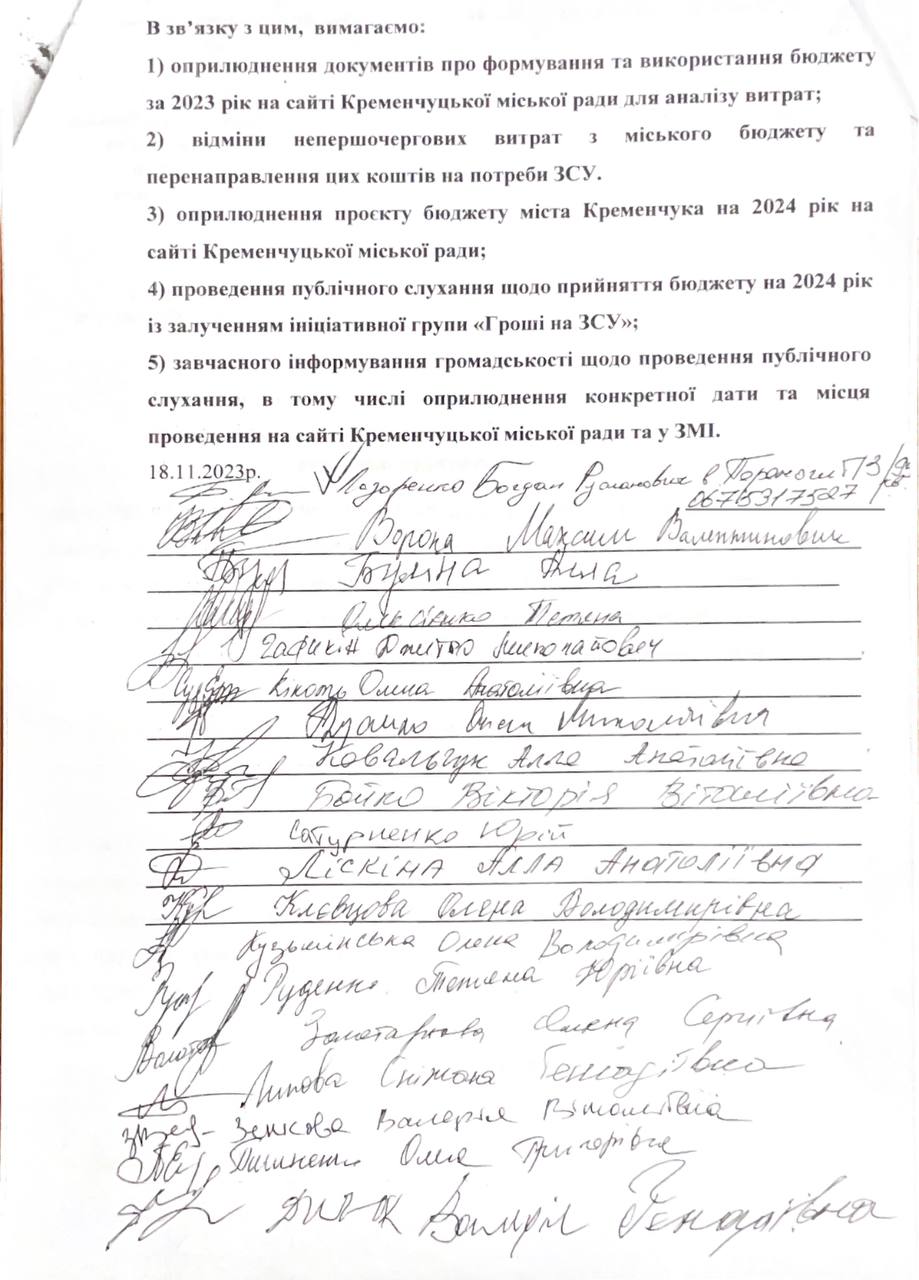 В зв’язку з цим, вимагаємо:
1) оприлюднення документів про формування та використання бюджету
за 2023 рік на сайті Кременчуцької міської ради для аналізу витрат;
2) відміни непершочергових витрат з міського бюджету та
перенаправлення цих коштів на потреби ЗСУ.
3) оприлюднення проєкту бюджету міста Кременчука на 2024 рік на
сайті Кременчуцької міської ради;
4) проведення публічного слухання щодо прийняття бюджету на 2024 рік
із залученням ініціативної групи «Гроші на ЗСУ»;
5) завчасного інформування громадськості щодо проведення публічного
слухання, в тому числі оприлюднення конкретної дати та місця
проведення на сайті Кременчуцької міської ради та у ЗМІ.
18.11.2023р.
Лазоренко Богдан Русланович
0675317527
Ворона Максим Валентинович
Алла
Олексієнко Тетяна
Гафикін Дмитро Миколайович
Кікоть Олена Анатоліївна
Миколаївна
Ковальчук Алла Анатоліївна
Бойко Вікторія Віталіївна
Сатурненко Юрій
Ліскіна Алла Анатоліївна
Клєвцова Олена Володимирівна
Кузьмінська Олена Володимирівна
Руденко Тетяна Юріївна
Золотарьова Олена Сергіївна
Липова Сніжана Генадіївна
Зенкова Валерія Віталіївна
Олга Григорівна
Генадіївна